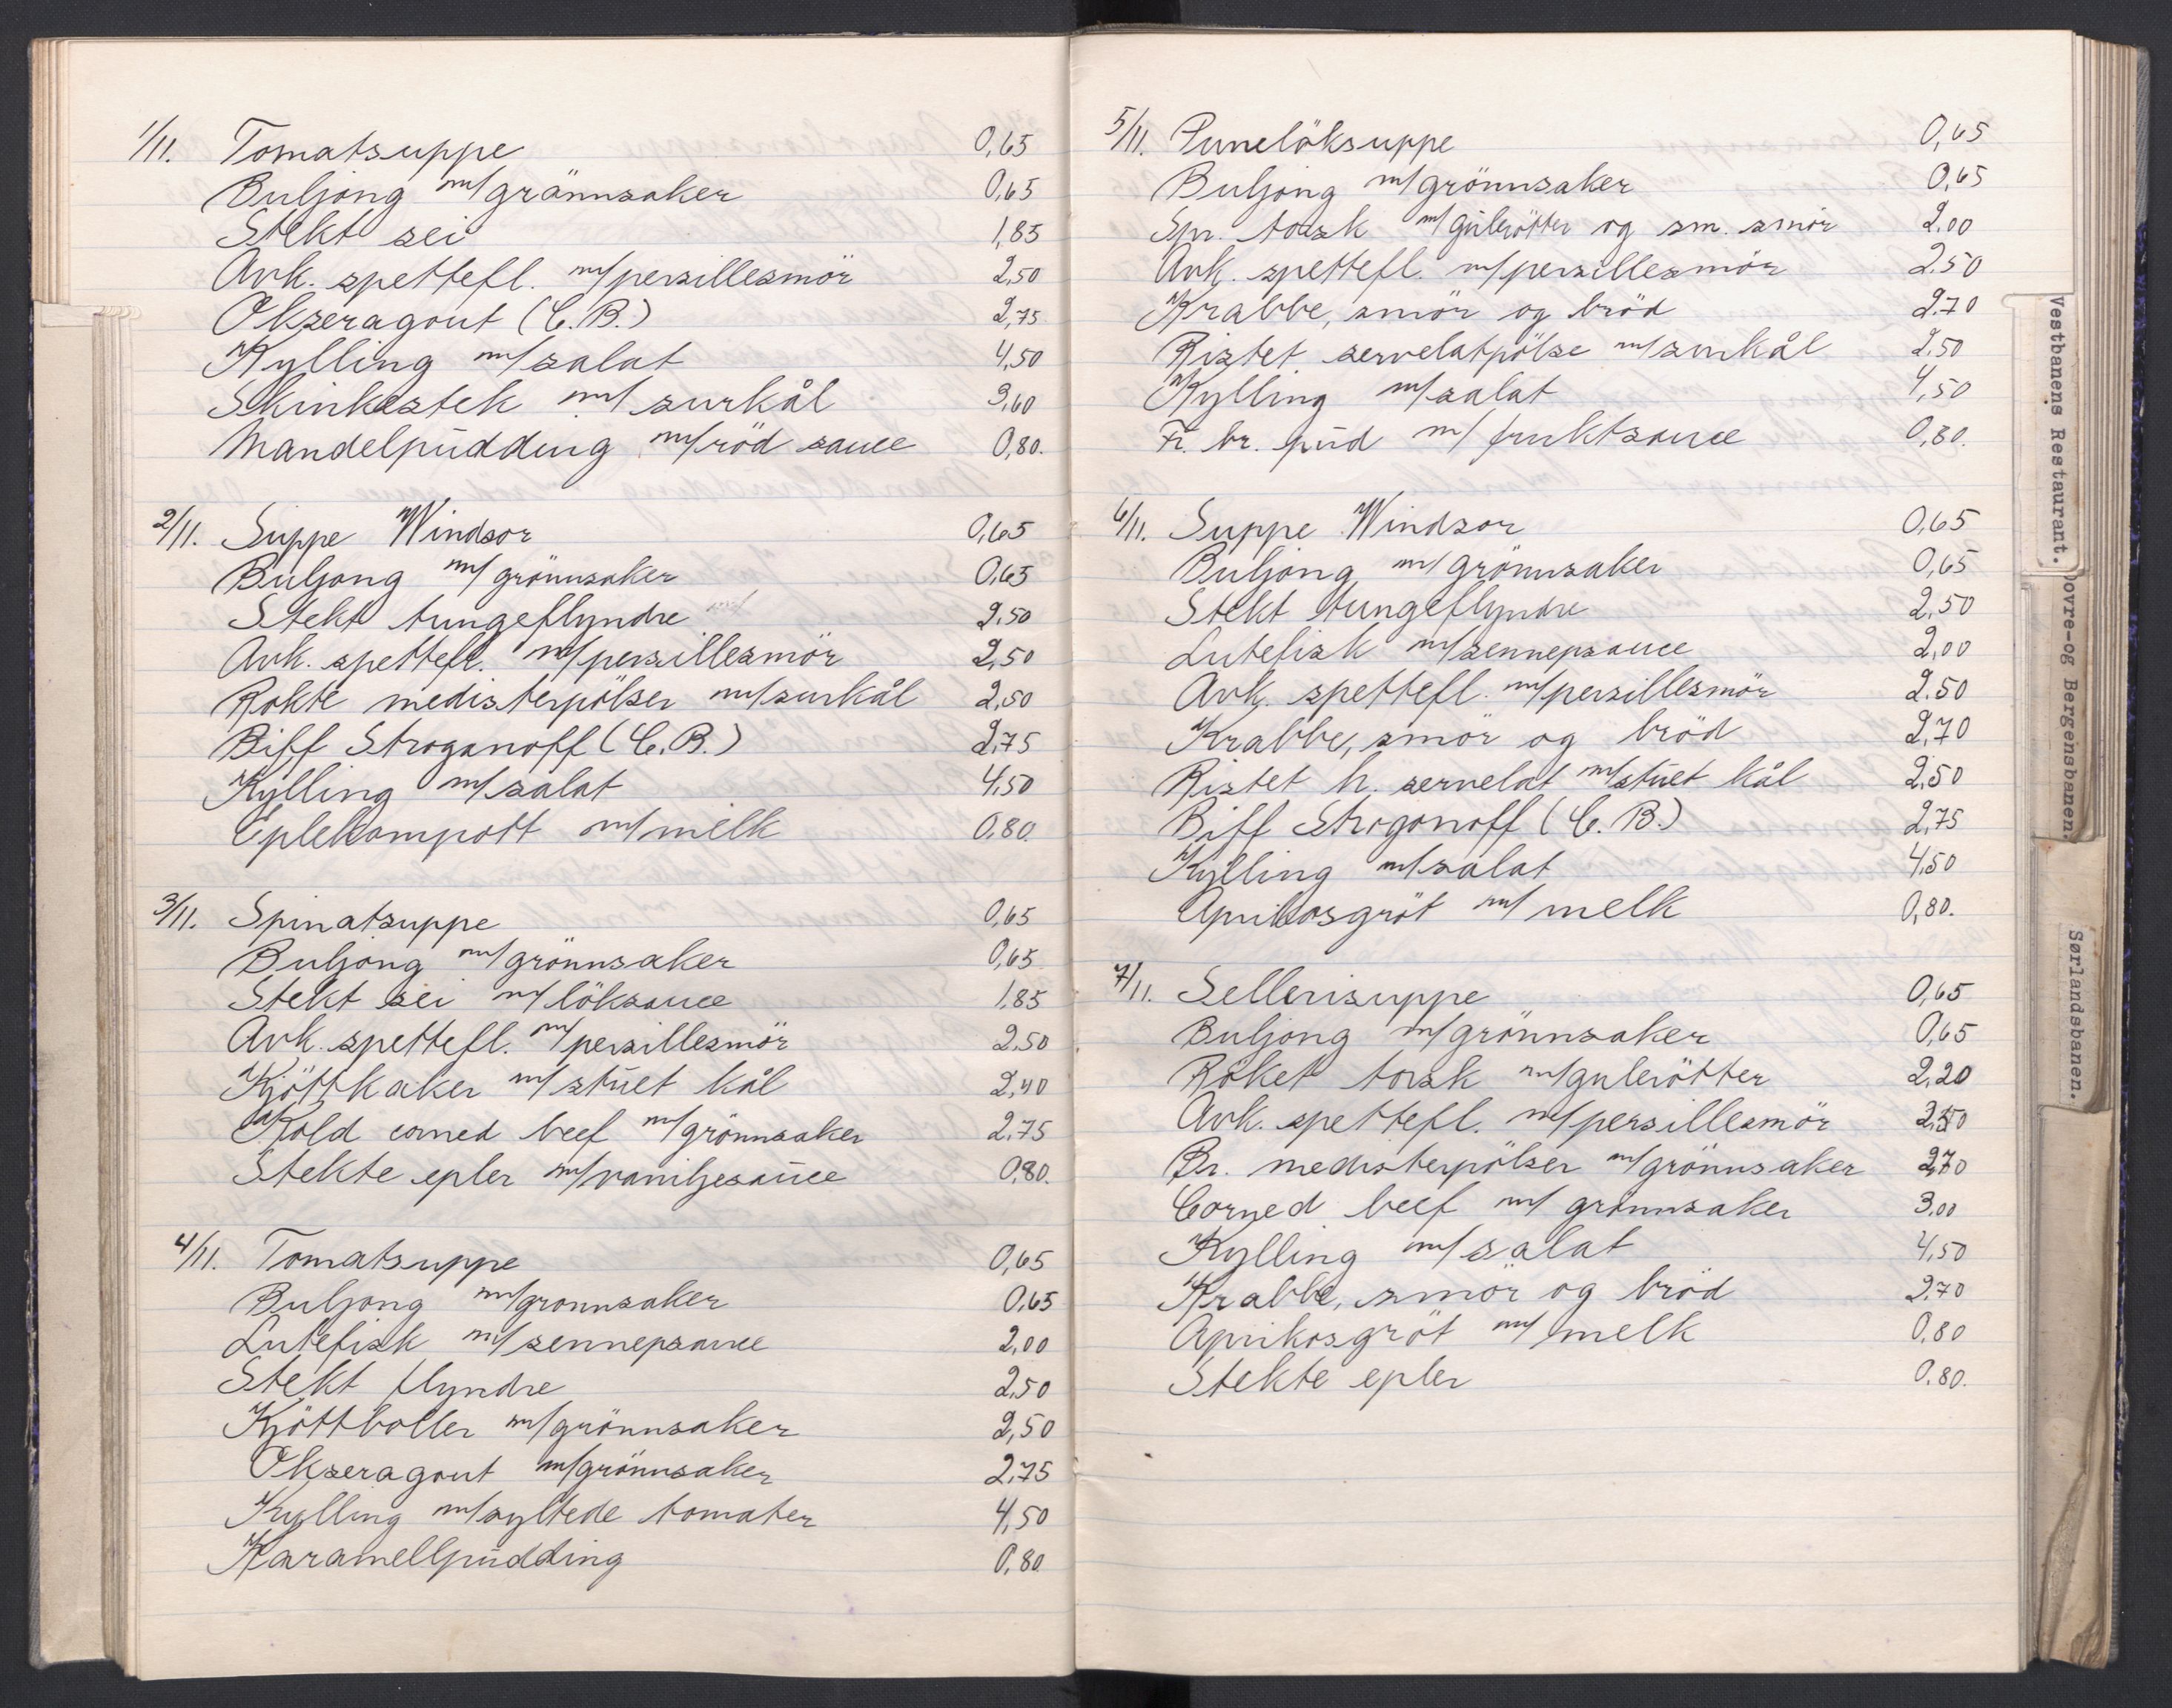 1/11. Tomatsuppe 0,65
Buljong m/grønnsaker 0,65
Stekt sei 1,85
Avk. spettefl. m/persillesmör 2,50
Okseragout (C.B.) 2,75
Kylling m/salat 4,50
Skinkestek m/surkål 3,60
Mandelpudding m/röd sauce 0,80.
2/11. Suppe Windsor 0,65
Buljong m/grönnsaker 0,65
Stekt tungeflyndre 2.50
Avk. spettefl. m/persillesmör 2,50
Rökte medisterpölser m/surkål 2,50
Biff Stroganoff (C.B.) 2,75
Kylling m/salat 4,50
Eplekompott m/melk 0,80.
3/11. Spinatsuppe 0,65
Buljong m/grönnsaker 0,65
Stekt sei m/löksauce 1.85
Avk. spettefl. m/persillesmör 2,50
Kjöttkaker m/stuet kål 2,40
Kold corned beef m/grönnsaker 2.75
Stekte epler m/vaniljesauce 0,80.
4/11. Tomatsuppe 0,65
Buljong m/gronnsaker 0,65
Lutefisk m/sennepsauce 2,00
Stekt flyndre 2,50
Kjöttboller m/grönnsaker 2,50
Okseragout m/grönnsaker 2,75
Kylling m/syltede tomater 4,50
Karamellpudding 0,80
5/11. Purrelöksuppe 0,65
Buljong m/grönnsaker 0,65
Spr. torsk m/gulerötter og sm. smör 2.00
Avk. spettefl. m/persillesmör 2.50
Krabbe, smör og bröd 2.70
Ristet servelatpölse m/surkål 2.50
Kylling m/salat 4,50
Fr. br. pud m/fruktsauce 0,80.
6/11. Suppe Windsor 0,65
Buljong m/grönnsaker 0,65
Stekt tungeflyndre 2,50
Lutefisk m/sennepsauce 2,00
Avk. spettefl. m/persillesmör 2.50
Krabbe, smör og bröd 2,70
Ristet h. servelat m/stuet kål 2,50
Biff Stroganoff (C.B.) 2,75
Kylling m/salat 4,50
Aprikosgröt m/melk 0,80.
7/11. Sellerisuppe 0,65
Buljong m/grönnsaker 0,65
Röket torsk m/gulerötter 2,20
Avk. spettefl. m/persillesmör 2,50
Br. medisterpölser m/grönnsaker 2,70
Corned beef m/grønnsaker 3,00
Kylling m/salat 4,50
Krabbe, smör og bröd 2.70
Aprikosgröt m/melk 0,80
Stekte epler 0.80.
Vestbanens Restaurant.
Dovre-og Bergensbanen.
Sørlandsbanen.